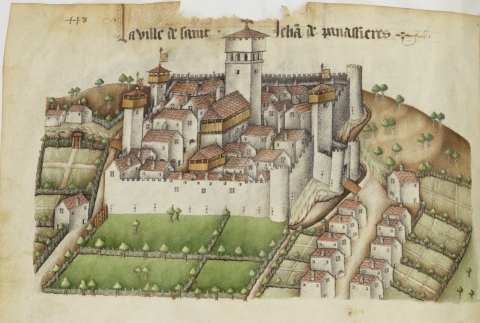 448
La ville de saint jehã de panassieres